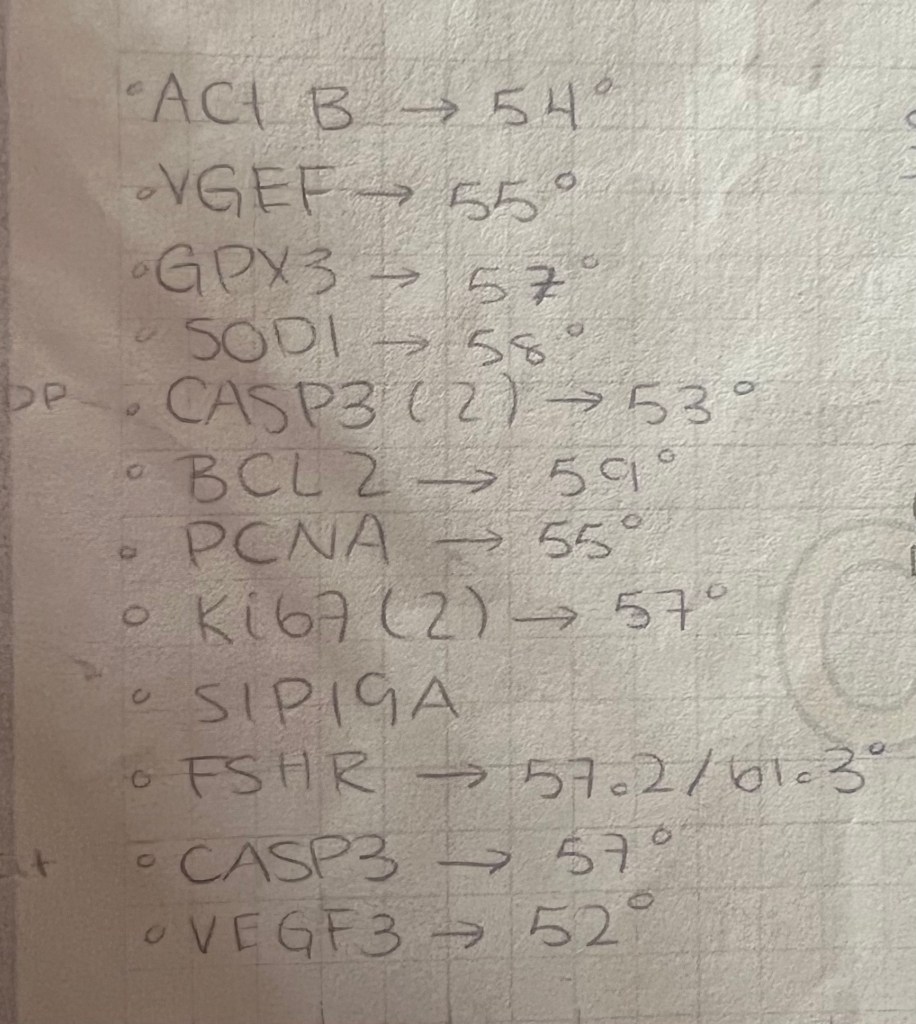 ° ACt B → 54°
° VGEF → 55°
° GPX3 → 57°
° SOD1 → 58°
DP ° CASP3 (2) → 53°
° BCL2 → 59°
° PCNA → 55°
° Ki67 (2) → 57°
° SIP19A
° FSHR → 57.2/61.3°
° CASP3 → 57°
° VEGF3 → 52°